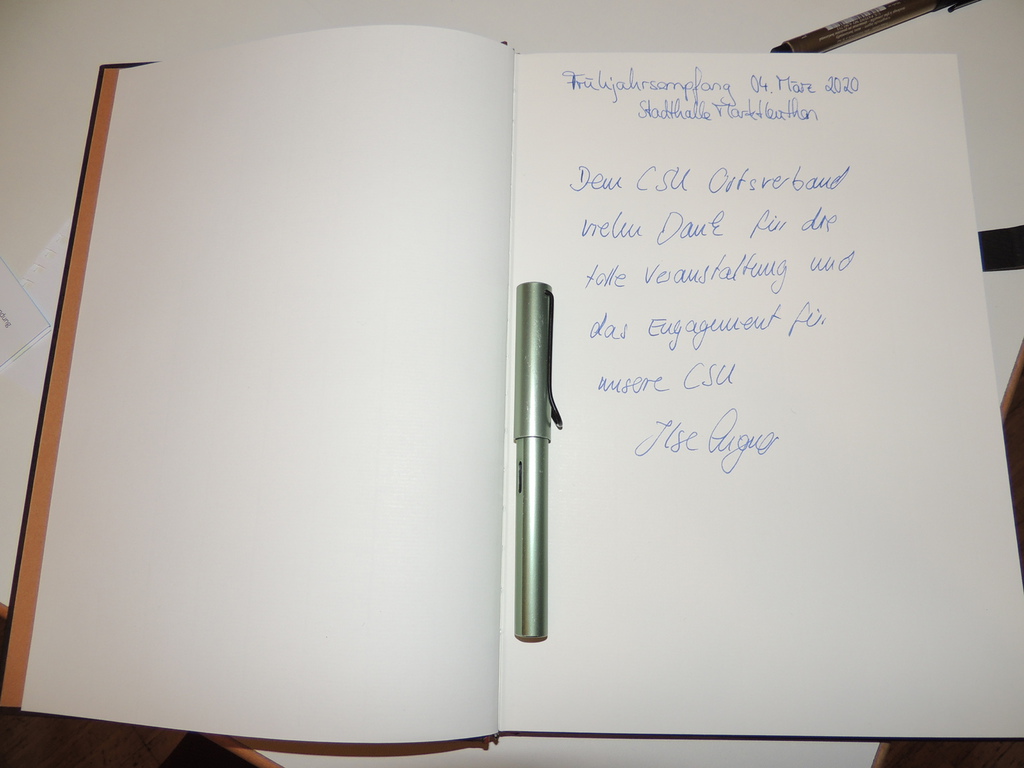 Frühjahrsempfang 04. März 2020
Stadthalle Marktleuthen
Dem CSU Ortsverband
vielen Dank für die
tolle Veranstaltung und
das Engagement für
unsere CSU
Ilse Aigner